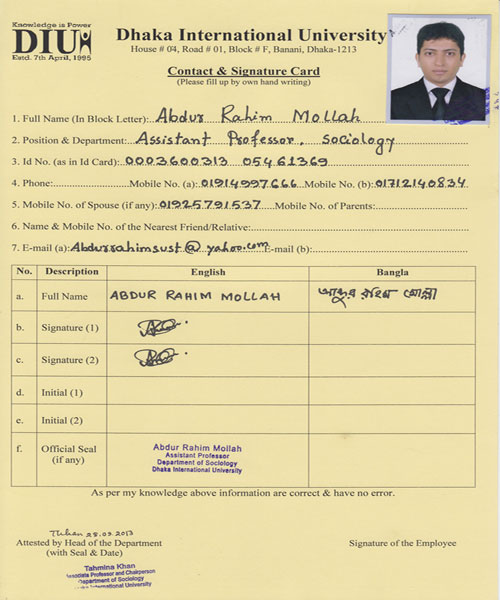 Knowledge is Power
DIU
Estd. 7th April, 1995
Dhaka International University
House # 04, Road # 01, Block # F, Banani, Dhaka-1213
Contact & Signature Card
(Please fill up by own hand writing)
1. Full Name (In Block Letter): Abdur Rahim Mollah
2. Position & Department: Assistant Professor, Sociology
3. Id No. (as in Id Card): 0003600313 05461369
4. Phone: Mobile No. (a): 01914997666 Mobile No. (b): 01712140834
5. Mobile No. of Spouse (if any): 01925791537 Mobile No. of Parents:
6. Name & Mobile No. of the Nearest Friend/Relative:
7. E-mail (a): Abdurrahimsust@yahoo.com E-mail (b):
No. Description English Bangla
a. Full Name ABDUR RAHIM MOLLAH আব্দুর রহিম মোল্লা
b. Signature (1)
c. Signature (2)
d. Initial (1)
e. Initial (2)
f. Official Seal (if any)
Abdur Rahim Mollah
Assistant Professor
Department of Sociology
Dhaka International University
As per my knowledge above information are correct & have no error.
28.09.2013
Attested by Head of the Department
(with Seal & Date)
Signature of the Employee
Tahmina Khan
Associate Professor and Chairperson
Department of Sociology
International University